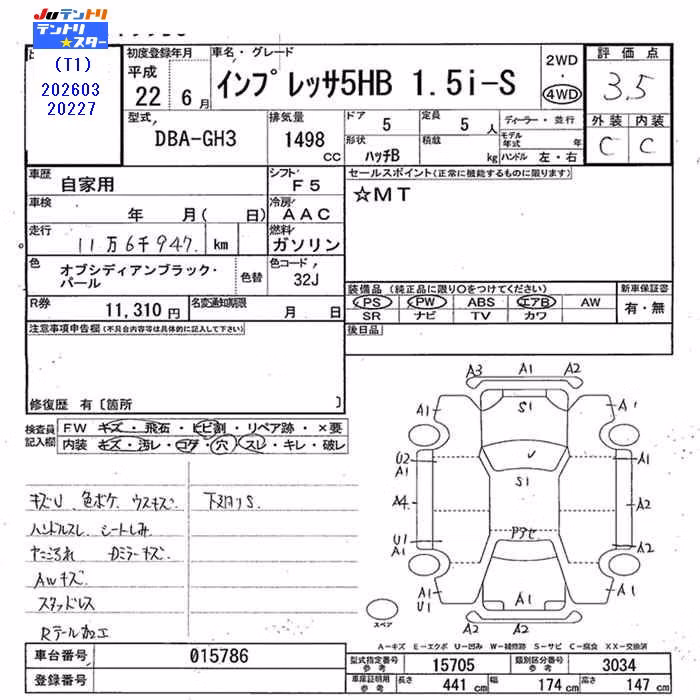 JUテントリ
テントリ
★スター
(T1)
202603
20227
初度登録年月
平成
22 6月
車名・グレード
インプレッサ5HB 1.5i-S
2WD
・
4WD
評価点
3.5
外装 内装
C C
型式
DBA-GH3
排気量
1498
CC
ドア 5
定員 5人
ディーラー・並行
形状
ハッチB
積載
kg
モデル年式 年
ハンドル 左・右
車歴
自家用
シフト
F5
セールスポイント(正常に機能するものに限ります)
☆MT
車検
年 月( 日)
冷房
AAC
走行
11万6千947 km
燃料
ガソリン
色
オブシディアンブラック・
パール
色替
色コード
32J
装備品(純正品に限り○をつけてください)
PS PW ABS エアB AW
SR ナビ TV カワ
新車保証書
有・無
R券
11,310円
名変通知期限
月 日
後日品
注意事項申告欄(不具合内容等は具体的に記入して下さい)
修復歴 有〔箇所 〕
検査員
記入欄
FW キズ・飛石・ヒビ割・リペア跡・×要
内装 キズ・汚レ・コゲ・穴・スレ・キレ・破レ
キズU 色ボケ ウスキズ 下スリS
ハンドルスレ シートしみ
ヤニ汚れ Dミラーキズ
AWキズ
スタッドレス
Rテール加工
A3 A1 A2
A1 S1 A1
U2
A1
A1
S1
A4
A2
アタセ
U1
A1
A2
A1
U1
A1
A1
A2
A1
A2
スペア
A-キズ E-エクボ U-凹み W-補修跡 S-サビ C-腐食 XX-交換済
車台番号
015786
登録番号
型式指定番号
参考
15705
類別区分番号
参考
3034
車庫証明用
参考
長さ 441cm
幅 174cm
高さ 147cm